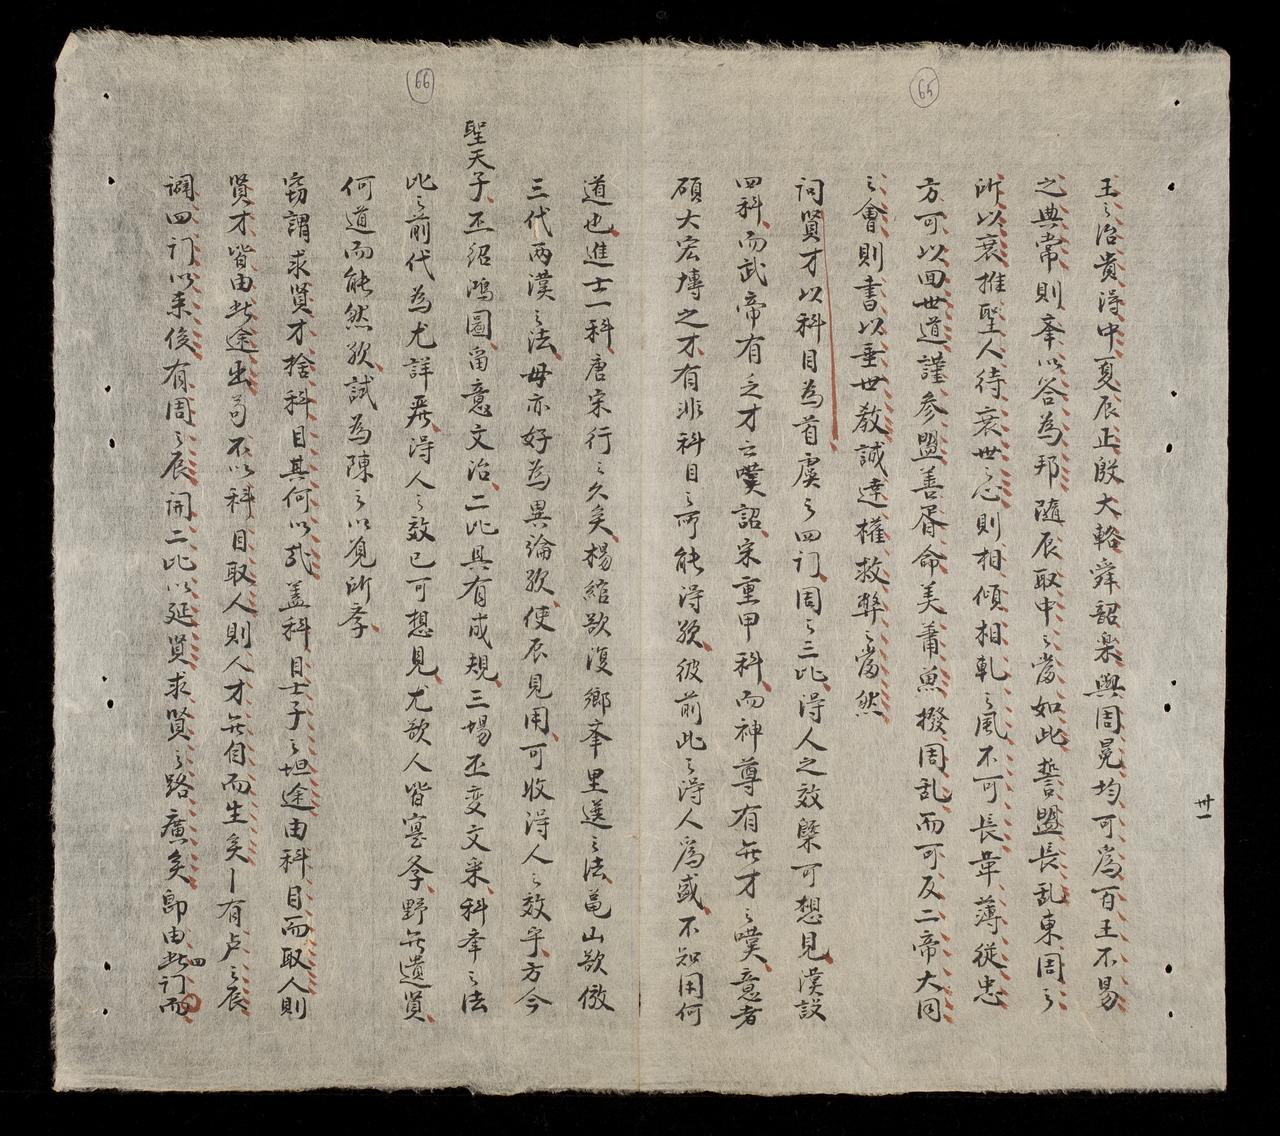 65
王之治貴淂中夏辰正殷大輅舜韶楽與周冕均可為百王不易
之典常則夆以答為邦隨辰取中之當如此誓盟長乱東周之
所以衰推聖人待衰世之心則相傾相軋之風不可長韋薄従忠
方可以回世道謹参盟善胥命美蕭魚撥周乱而可反二帝大同
之會則書以垂世教誠達權救弊之當然
卅一
问贤才以科目為首虞之四门周之三比淂人之效槩可想見漢設
四科而武帝有乏才之嘆詔宋重甲科而神尊有無才之嘆意者
碩大宏博之才有非科目之所能淂欤彼前此之淂人為盛不知用何
66
道也進士一科唐宋行之久矣楊綰欲復鄉夆里選之法龜山欲倣
三代两漢之法毋亦好為異論欤使辰見用可收淂人之效乎方今
聖天子丕紹鴻圖畱意文治二比具有成規三場丕变文采科夆之法
比之前代為尤詳厥淂人之效已可想見尤欲人皆寔孝野無遺贤
何道而能然欤試為陳之以覍所孝
窃謂求贤才捨科目其何以哉盖科目士子之坦途由科目而取人則
贤才皆由此途出苟不以科目取人則人才無自而生矣丨有卢之辰
闢四门以来俊有周之辰開二比以延贤求贤之路廣矣郎由此四门而